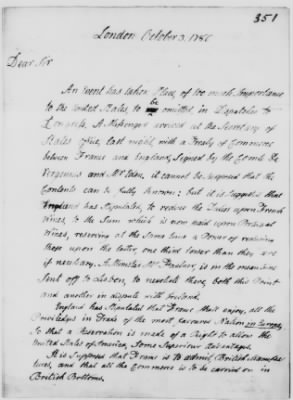 351
London October 3. 1786
Dear Sir
An Event has taken Place, of too much Importance
to the United States, to be omitted, in Dispatches to
Congress. A Messenger arrived at the Secretary of
States office, last night, with a Treaty of Commerce
between France and England, signed by the Comte De
Vergennes and Mr Eden. it cannot be supposed that the
Contents can be fully known: but it is suggested that
England has stipulated, to reduce the Duties upon French
Wines, to the Sum which is now paid upon Portugal
Wines, reserving at the same time a Power of reducing
those upon the latter, one third lower than they are
if necessary. A Minister, Mr is in the mean time
sent off to Lisbon, to negotiate there, both this Point
and another in dispute with Ireland.
England has stipulated that France shall enjoy, all the
Priviledges in Trade of the most favoured Nation in Europe,
so that a Reservation is made of a Right to allow the
United States of America, some Superiour Advantages.
It is supposed that France is to admit, British Manufac
tures, and that all the Commerce is to be carried on in
British Bottoms.